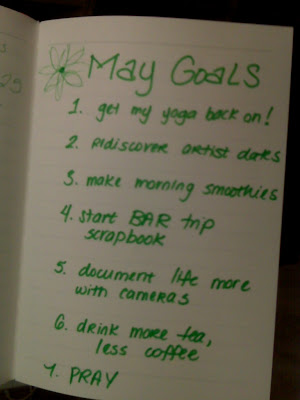 May Goals
1. get my yoga back on!
2. rediscover artist dates
3. make morning smoothies
4. start BAR trip
scrapbook
5. document life more
with cameras
6. drink more tea,
less coffee
7. PRAY